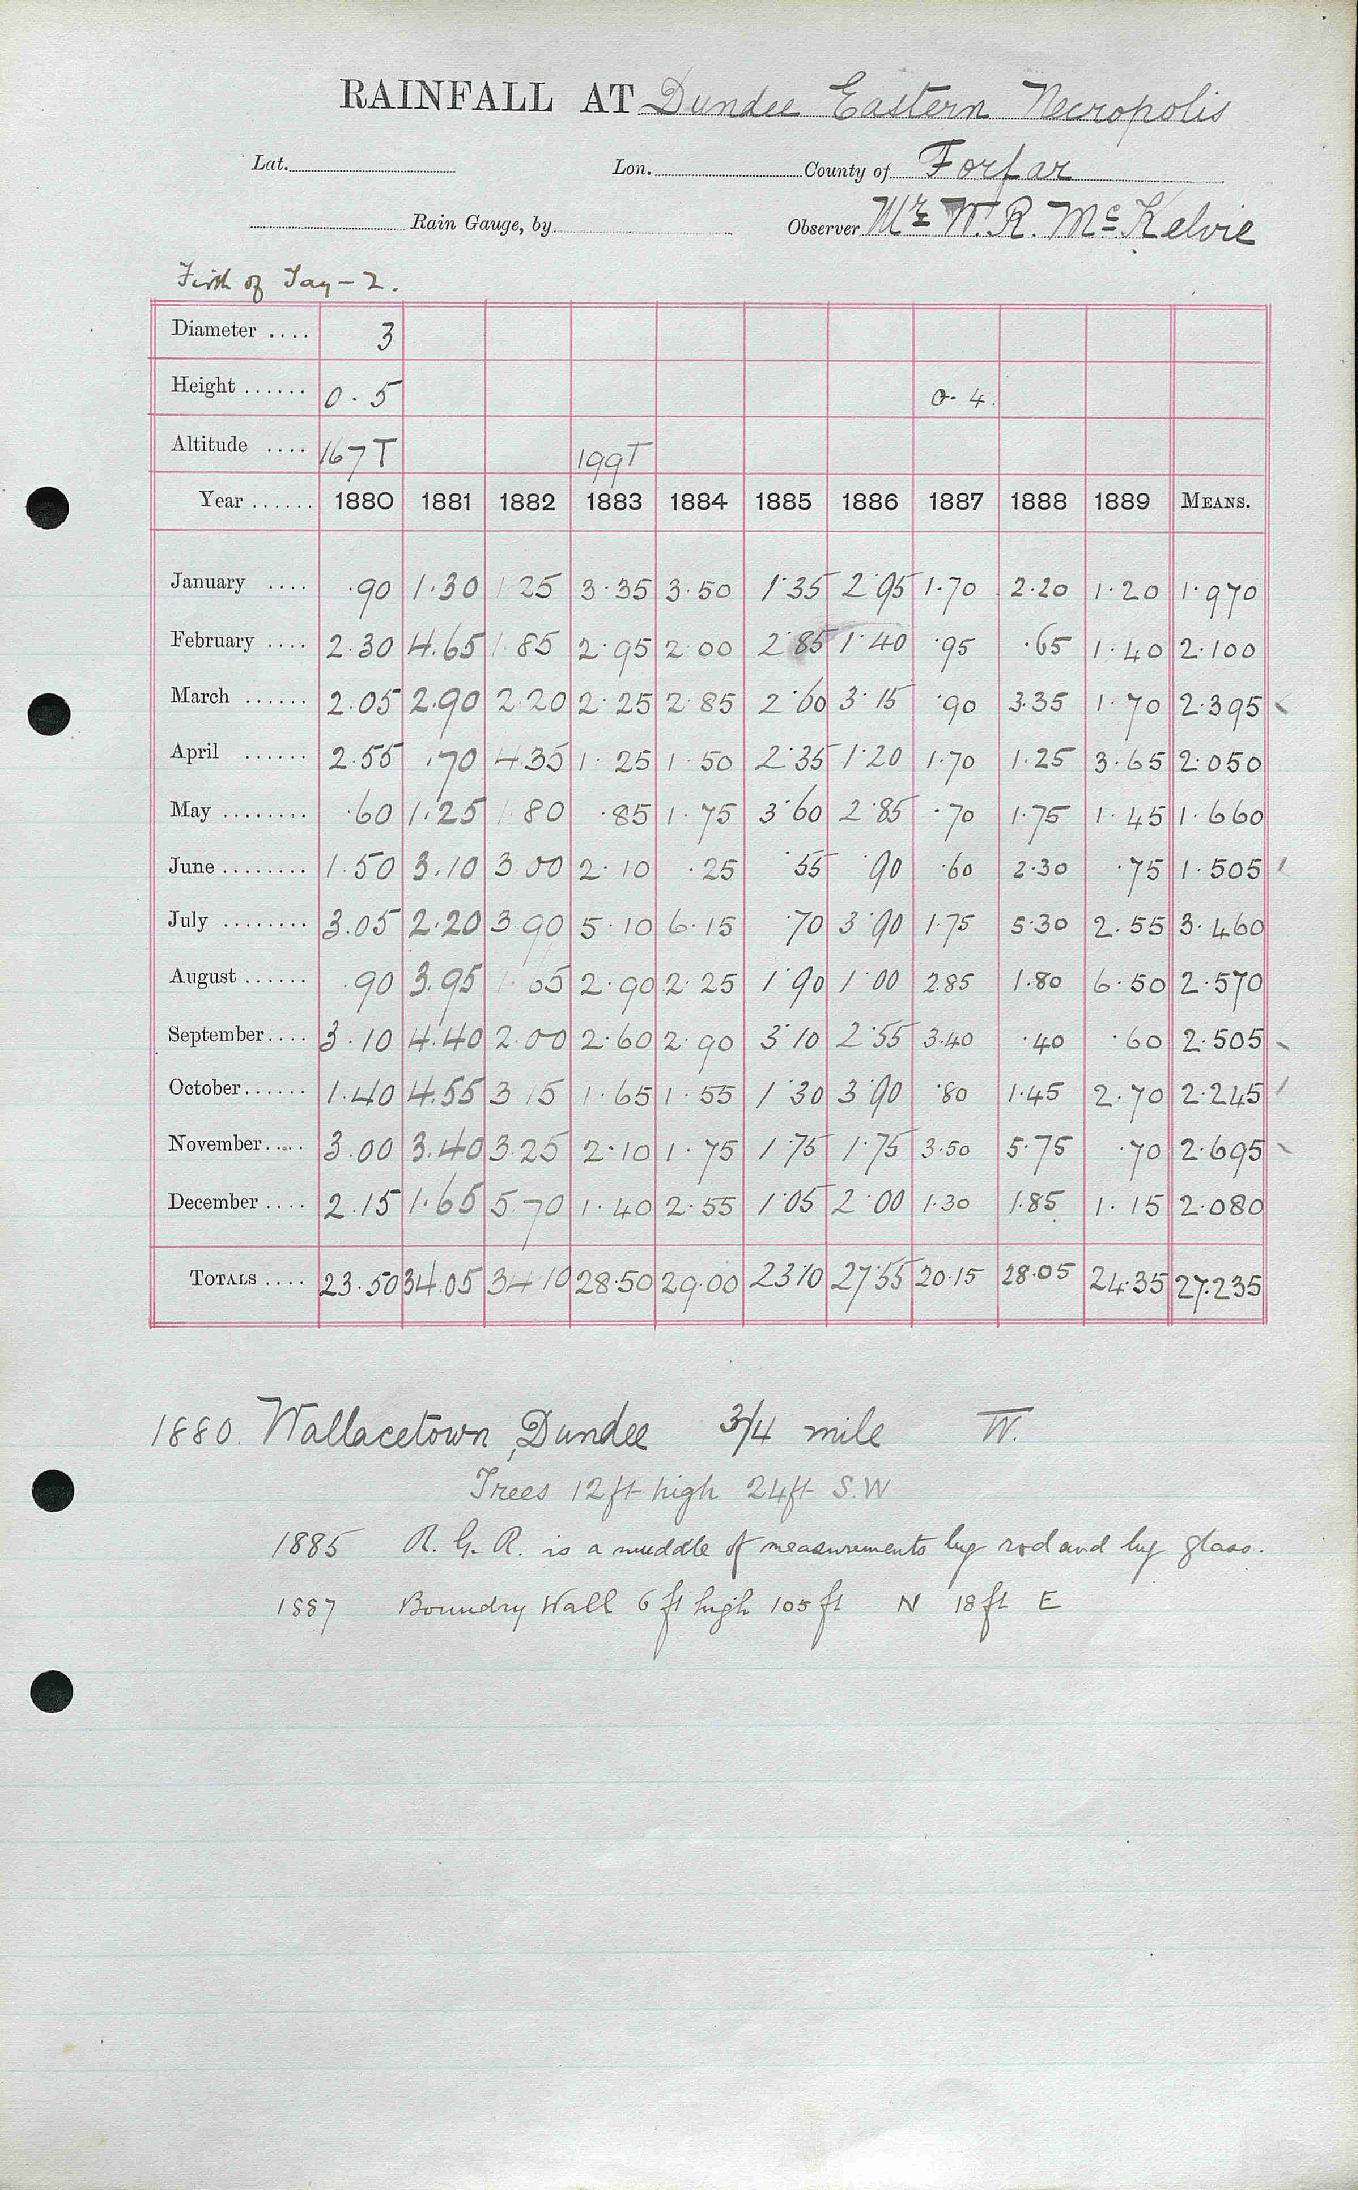 RAINFALL AT Dundee Eastern Necropolis
Lat. Lon. County of Forfar
Rain Gauge, by Observer Mr W. R. McKelvie
Firth of Tay - 2.
Diameter .... 3
Height ...... 0.5 0.4.
Altitude .... 167T 199T
Year ...... 1880 1881 1882 1883 1884 1885 1886 1887 1888 1889 MEANS.
January .... .90 1.30 1.25 3.35 3.50 1.35 2.95 1.70 2.20 1.20 1.970
February .... 2.30 4.65 1.85 2.95 2.00 2.85 1.40 .95 .65 1.40 2.100
March ...... 2.05 2.90 2.20 2.25 2.85 2.60 3.15 .90 3.35 1.70 2.395
April ...... 2.55 .70 4.35 1.25 1.50 2.35 1.20 1.70 1.25 3.65 2.050
May ........ .60 1.25 1.80 .85 1.75 3.60 2.85 .70 1.75 1.45 1.660
June ........ 1.50 3.10 3.00 2.10 .25 .55 .90 .60 2.30 .75 1.505
July ........ 3.05 2.20 3.90 5.10 6.15 .70 3.90 1.75 5.30 2.55 3.460
August ...... .90 3.95 1.65 2.90 2.25 1.90 1.00 2.85 1.80 6.50 2.570
September .... 3.10 4.40 2.00 2.60 2.90 3.10 2.55 3.40 .40 .60 2.505
October ...... 1.40 4.55 3.15 1.65 1.55 1.30 3.90 .80 1.45 2.70 2.245
November ..... 3.00 3.40 3.25 2.10 1.75 1.75 1.75 3.50 5.75 .70 2.695
December .... 2.15 1.65 5.70 1.40 2.55 1.05 2.00 1.30 1.85 1.15 2.080
TOTALS .... 23.50 34.05 34.10 28.50 29.00 23.10 27.55 20.15 28.05 24.35 27.235
1880. Wallacetown, Dundee 3/4 mile W.
Trees 12ft high 24ft S.W
1885 R. G. R. is a muddle of measurements by rod and by glass.
1887 Boundry Wall 6 ft high 105 ft N 18 ft E